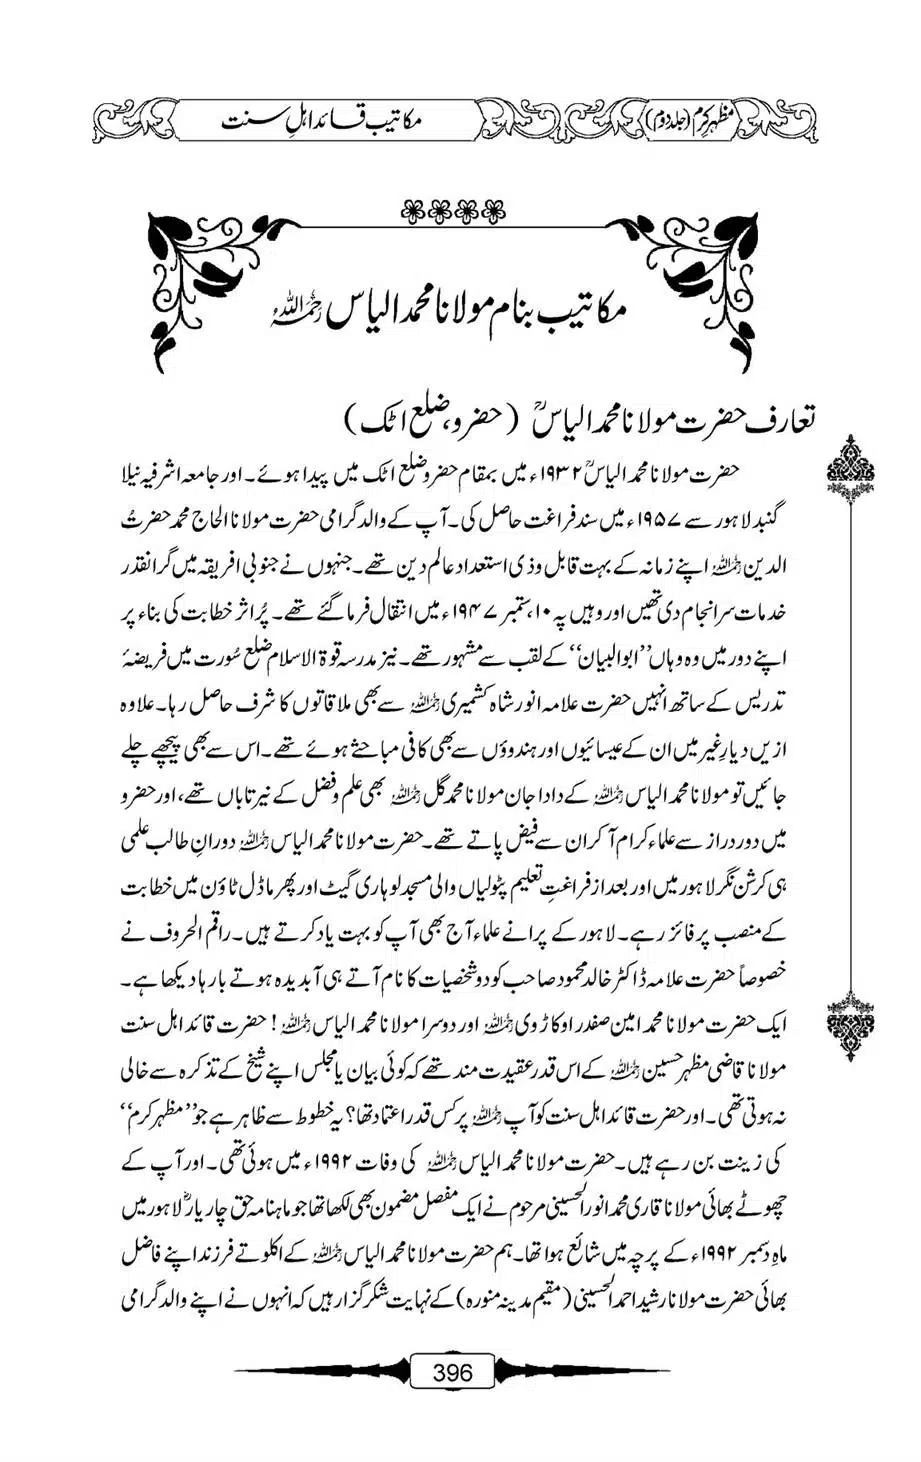 مظہرِ کرم (جلد دوم)
مکاتیب قائد اہلِ سنت
مکاتیب بنام مولانا محمد الیاس رحمہ اللہ
تعارف حضرت مولانا محمد الیاسؒ (حضرو، ضلع اٹک)
حضرت مولانا محمد الیاسؒ ۱۹۳۲ء میں بمقام حضرو ضلع اٹک میں پیدا ہوئے۔ اور جامعہ اشرفیہ نیلا
گنبد لاہور سے ۱۹۵۷ء میں سند فراغت حاصل کی۔ آپ کے والد گرامی حضرت مولانا الحاج محمد حضرتُ
الدین رحمہ اللہ اپنے زمانہ کے بہت قابل و ذی استعداد عالم دین تھے۔ جنہوں نے جنوبی افریقہ میں گرانقدر
خدمات سرانجام دی تھیں اور وہیں پہ ۱۰، ستمبر ۱۹۴۷ء میں انتقال فرما گئے تھے۔ پُر اثر خطابت کی بناء پر
اپنے دور میں وہ وہاں ’’ابوالبیان‘‘ کے لقب سے مشہور تھے۔ نیز مدرسہ قوۃ الاسلام ضلع سُورت میں فریضۂ
تدریس کے ساتھ انہیں حضرت علامہ انور شاہ کشمیری رحمہ اللہ سے بھی ملاقاتوں کا شرف حاصل رہا۔ علاوہ
ازیں دیارِ غیر میں ان کے عیسائیوں اور ہندوؤں سے بھی کافی مباحثے ہوئے تھے۔ اس سے بھی پیچھے چلے
جائیں تو مولانا محمد الیاس رحمہ اللہ کے دادا جان مولانا محمد گل رحمہ اللہ بھی علم و فضل کے نیر تاباں تھے، اور حضرو
میں دور دراز سے علماء کرام آ کر ان سے فیض پاتے تھے۔ حضرت مولانا محمد الیاس رحمہ اللہ دورانِ طالب علمی
ہی کرشن نگر لاہور میں اور بعد از فراغتِ تعلیم پٹولیاں والی مسجد لوہاری گیٹ اور پھر ماڈل ٹاؤن میں خطابت
کے منصب پر فائز رہے۔ لاہور کے پرانے علماء آج بھی آپ کو بہت یاد کرتے ہیں۔ راقم الحروف نے
خصوصاً حضرت علامہ ڈاکٹر خالد محمود صاحب کو دو شخصیات کا نام آتے ہی آبدیدہ ہوتے بارہا دیکھا ہے۔
ایک حضرت مولانا محمد امین صفدر اوکاڑوی رحمہ اللہ اور دوسرا مولانا محمد الیاس رحمہ اللہ! حضرت قائد اہل سنت
مولانا قاضی مظہر حسین رحمہ اللہ کے اس قدر عقیدت مند تھے کہ کوئی بیان یا مجلس اپنے شیخ کے تذکرہ سے خالی
نہ ہوتی تھی۔ اور حضرت قائد اہل سنت کو آپ رحمہ اللہ پر کس قدر اعتماد تھا؟ یہ خطوط سے ظاہر ہے جو ’’مظہر کرم‘‘
کی زینت بن رہے ہیں۔ حضرت مولانا محمد الیاس رحمہ اللہ کی وفات ۱۹۹۲ء میں ہوئی تھی۔ اور آپ کے
چھوٹے بھائی مولانا قاری محمد انور الحسینی مرحوم نے ایک مفصل مضمون بھی لکھا تھا جو ماہنامہ حق چار یارؓ لاہور میں
ماہِ دسمبر ۱۹۹۲ء کے پرچہ میں شائع ہوا تھا۔ ہم حضرت مولانا محمد الیاس رحمہ اللہ کے اکلوتے فرزند اپنے فاضل
بھائی حضرت مولانا رشید احمد الحسینی (مقیم مدینہ منورہ) کے نہایت شکر گزار ہیں کہ انہوں نے اپنے والد گرامی
396